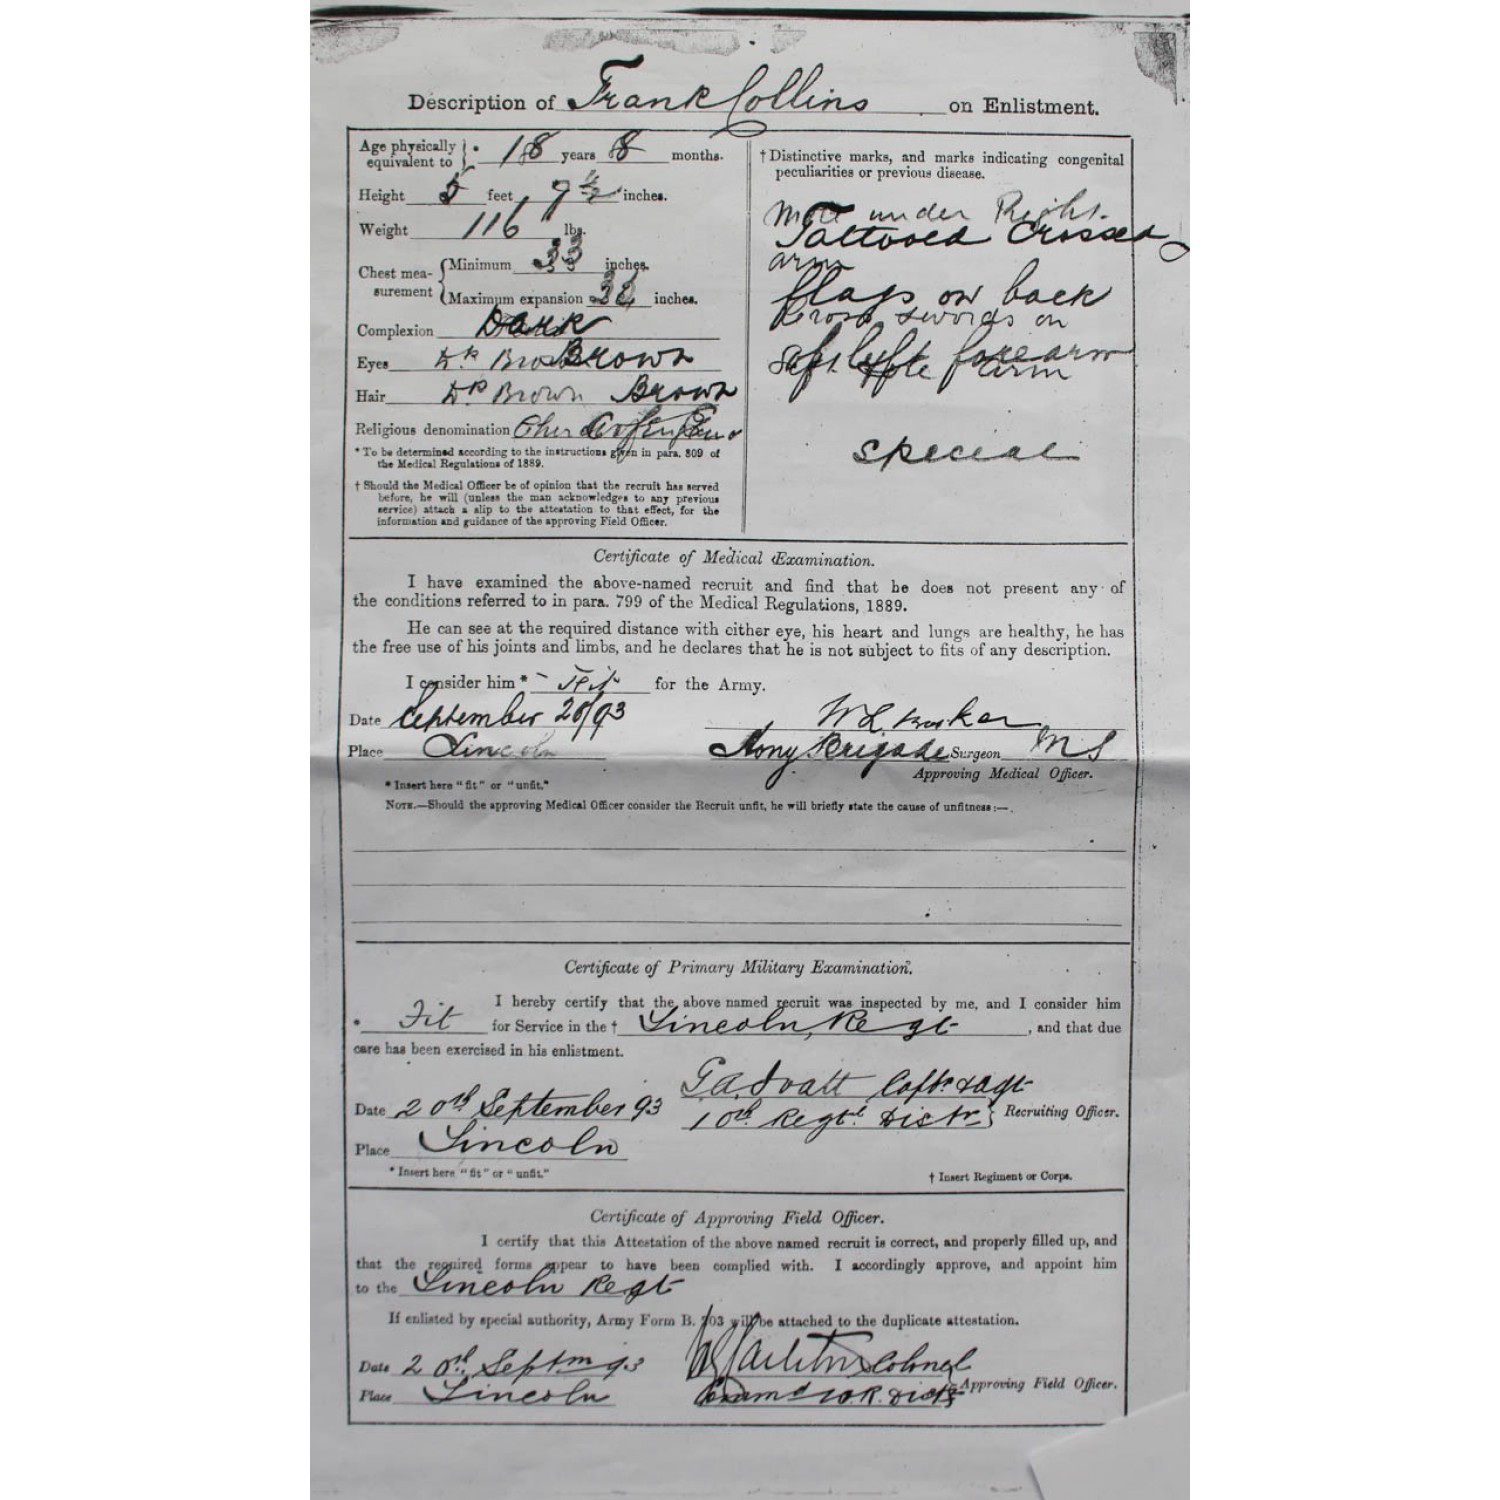 Description of Frank Collins on Enlistment.
Age physically equivalent to * 18 years 8 months.
Height 5 feet, 7 1/2 inches.
Weight 116 lbs.
Chest measurement Minimum 33 inches.
Maximum expansion inches.
Complexion Dark
Eyes Dk Brown
Hair Dk Brown Brown
Religious denomination
* To be determined according to the instructions given in para. 809 of
the Medical Regulations of 1889.
† Should the Medical Officer be of opinion that the recruit has served
before, he will (unless the man acknowledges to any previous
service) attach a slip to the attestation to that effect, for the
information and guidance of the approving Field Officer.
† Distinctive marks, and marks indicating congenital
peculiarities or previous disease.
under Right
Tattooed Crossed
arm
flags on back
Cross swords on
left forearm
arm
special
Certificate of Medical Examination.
I have examined the above-named recruit and find that he does not present any of
the conditions referred to in para. 799 of the Medical Regulations, 1889.
He can see at the required distance with either eye, his heart and lungs are healthy, he has
the free use of his joints and limbs, and he declares that he is not subject to fits of any description.
I consider him * Fit for the Army.
Date September 20/93
Place Lincoln
Brigade Surgeon MS
Approving Medical Officer.
* Insert here "fit" or "unfit."
NOTE.—Should the approving Medical Officer consider the Recruit unfit, he will briefly state the cause of unfitness:—
Certificate of Primary Military Examination.
I hereby certify that the above named recruit was inspected by me, and I consider him
* Fit for Service in the † Lincoln Regt, and that due
care has been exercised in his enlistment.
Date 20th September 93
10th Regtl Distr Recruiting Officer.
Place Lincoln
* Insert here "fit" or "unfit."
† Insert Regiment or Corps.
Certificate of Approving Field Officer.
I certify that this Attestation of the above named recruit is correct, and properly filled up, and
that the required forms appear to have been complied with. I accordingly approve, and appoint him
to the Lincoln Regt
If enlisted by special authority, Army Form B. 203 will be attached to the duplicate attestation.
Date 20th Septm 93
Colonel
Place Lincoln
Approving Field Officer.